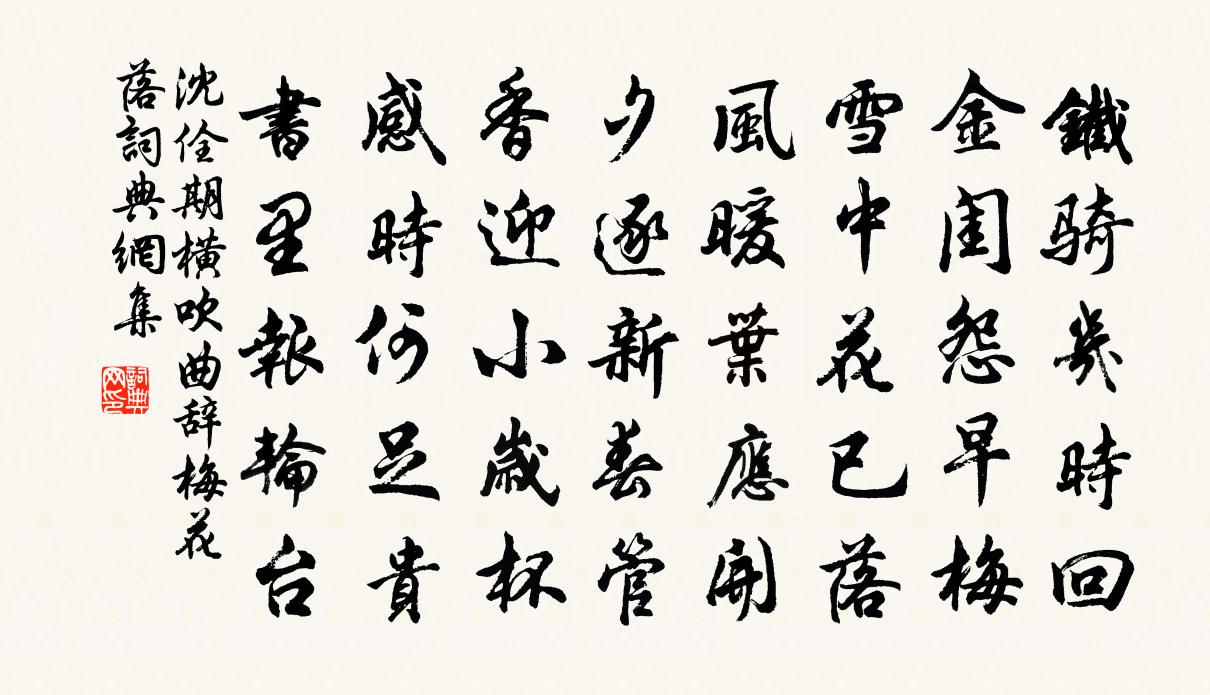 鐵骑幾時回
金閨怨早梅
雪中花已落
風暖葉應開
夕逐新春管
香迎小歲杯
感時何足貴
書里報輪台
沈佺期橫吹曲辞梅花
落詞典網集
詞典
网印